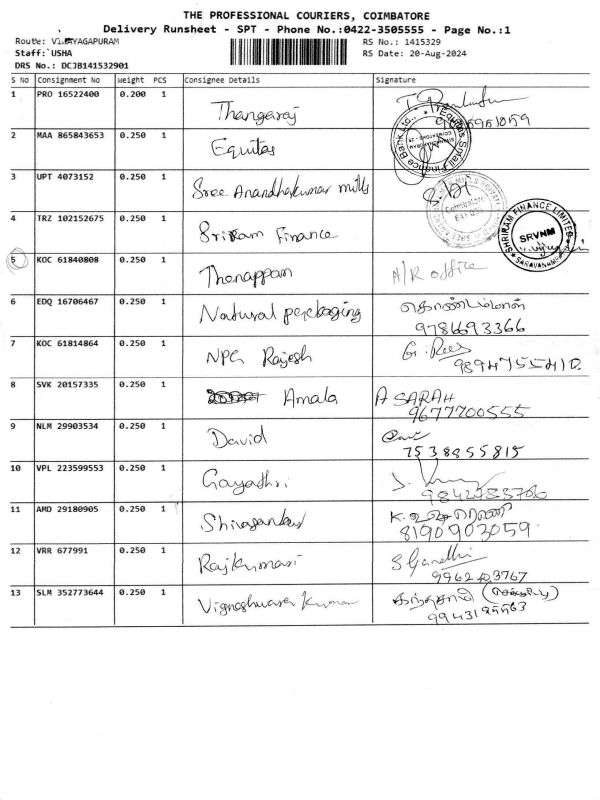 THE PROFESSIONAL COURIERS, COIMBATORE
Delivery Runsheet - SPT - Phone No.:0422-3505555 - Page No.:1
Route: VINAYAGAPURAM
RS No.: 1415329
Staff: USHA
RS Date: 20-Aug-2024
DRS No.: DCJB141532901
S No Consignment No Weight PCS Consignee Details Signature
1 PRO 16522400 0.200 1 Thangaraj
2 MAA 865843653 0.250 1 Equitas
3 UPT 4073152 0.250 1 Sree Anandhakumar mills
4 TRZ 102152675 0.250 1 Sriram Finance
SHRIRAM FINANCE LIMITED
SRVNM
5 KOC 61840808 0.250 1 Thenappan A/R office
6 EDQ 16706467 0.250 1 Natural packaging
9786693366
7 KOC 61814864 0.250 1 NPC Rajesh
8 SVK 20157335 0.250 1 Amala A SARAH
9677700555
9 NLM 29903534 0.250 1 David
7538855815
10 VPL 223599553 0.250 1 Gayathri
11 AMD 29180905 0.250 1
8190903059
12 VRR 677991 0.250 1 Rajkumari S Gandhi
9962403767
13 SLM 352773644 0.250 1 Vigneshwara Kumar